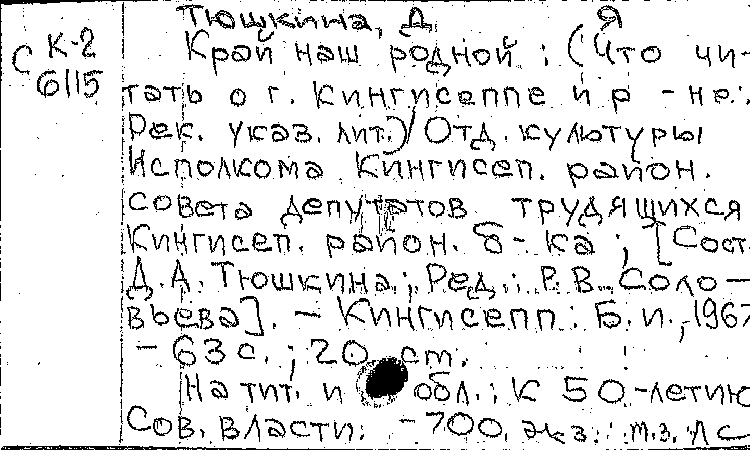 Тюшкина, Д Я
С К-2
6115
Край наш родной : (Что чи-
тать о г. Кингисеппе и р-не:
Рек. указ. лит.) / Отд. культуры
Исполкома Кингисеп. район.
совета депутатов трудящихся
Кингисеп. район. б-ка ; [Сост.
Д.А. Тюшкина ; Ред.: Р.В. Соло-
вьева]. - Кингисепп : Б.и., 1967
- 63 с. ; 20 см.
На тит. и обл.: К 50-летию
Сов. власти. - 700 экз.